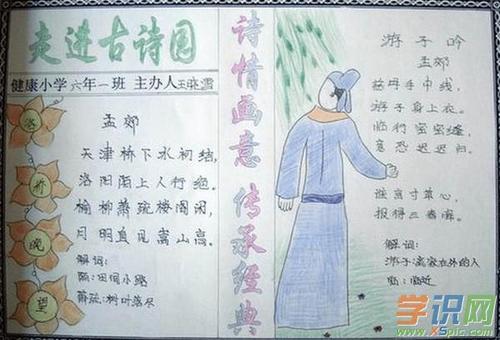 走进古诗园
健康小学六年一班 主办人王晓雪
洛桥晚望
孟郊
天津桥下水初结,
洛阳陌上人行绝。
榆柳萧疏楼阁闲,
月明直见嵩山高。
解词:
陌:田间小路
萧疏:树叶落尽
诗情画意 传承经典
游子吟
孟郊
慈母手中线,
游子身上衣。
临行密密缝,
意恐迟迟归。
谁言寸草心,
报得三春晖。
解词:
游子:离家在外的人
临:临近
学识网
XSpic.com